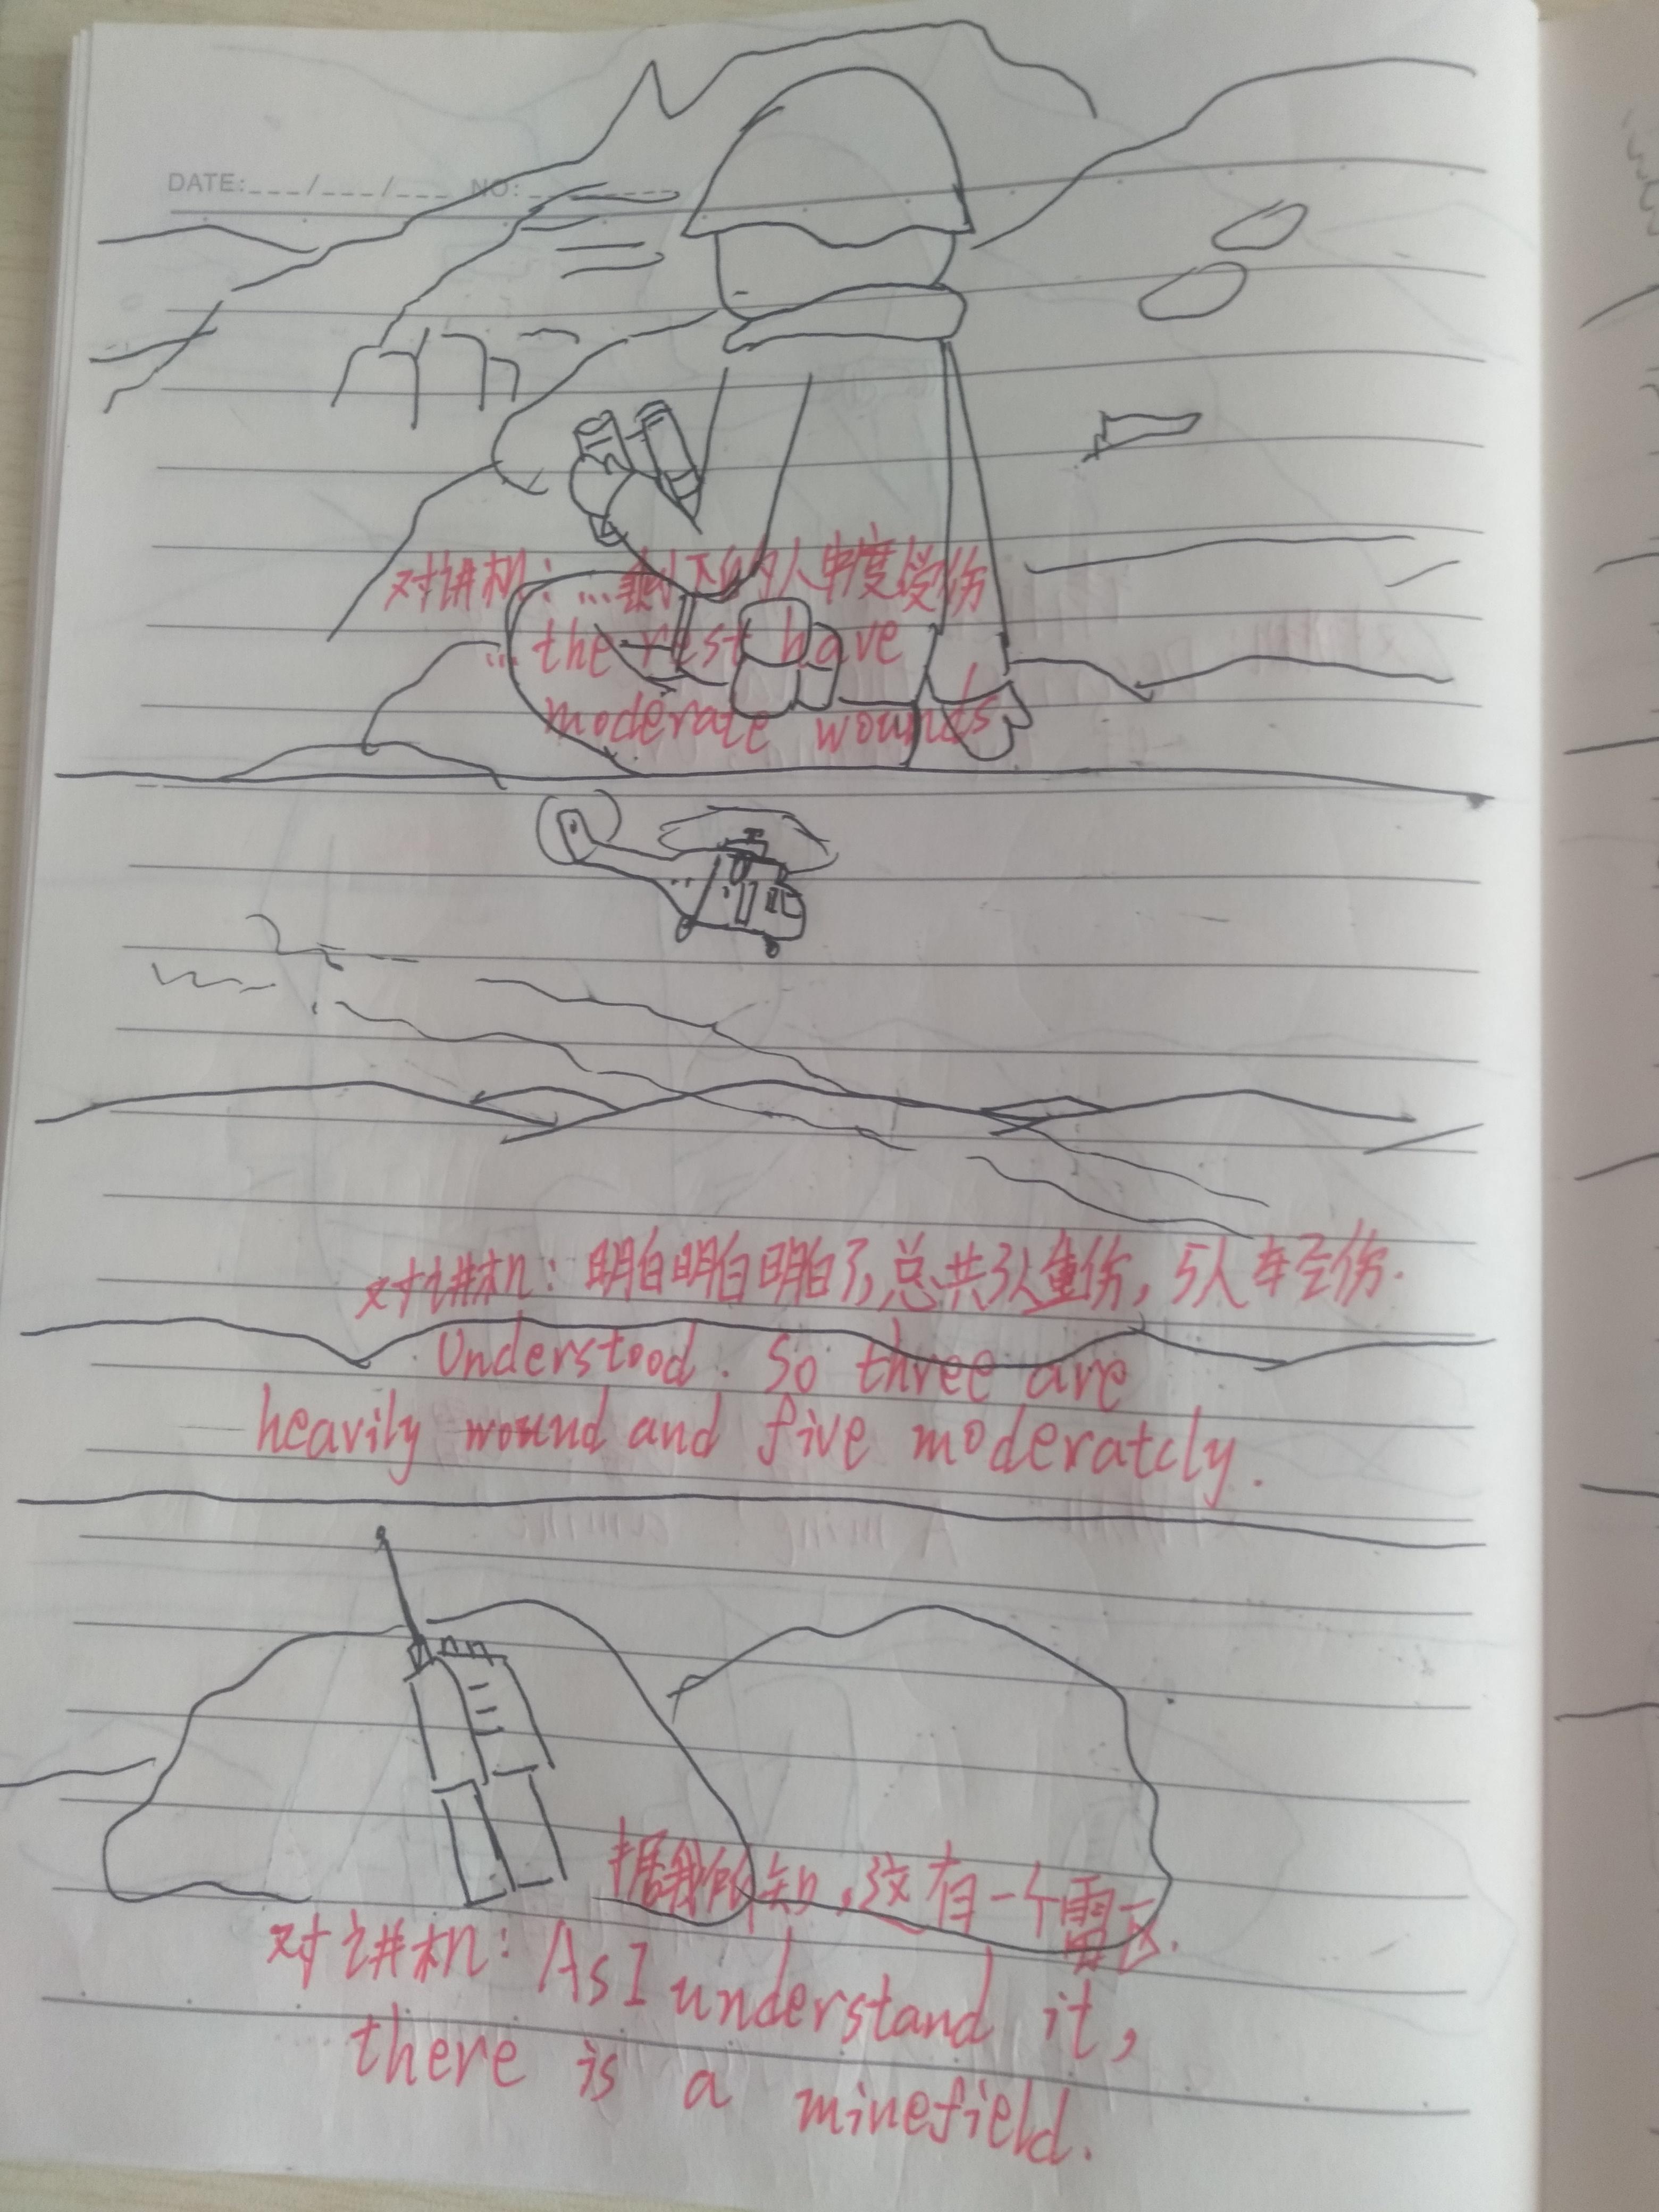 DATE:___/___/___ NO:
对讲机：...剩下的人中度受伤
...the rest have
moderate wounds
对讲机：明白明白明白了,总共3人重伤，5人轻伤.
Understood. So three are
heavily wound and five moderatcly.
据我所知,这有一个雷区.
对讲机：As I understand it,
there is a minefield.